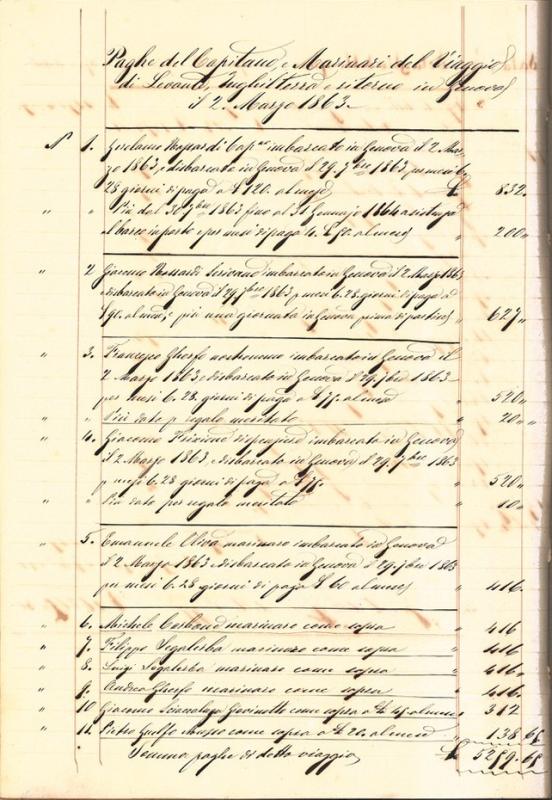 Paghe del Capitano, e Marinari del Viaggio
di Levante, Inghilterra e ritorno in Genova
il 2 Marzo 1863.
N 1. Girolamo Cap.no imbarcato in Genova il 2 Mar-
zo 1863, e disbarcato in Genova il 29. 7bre 1863, per mesi 6.
28 giorni di paga a £ 120. al mese £ 832.
" " Più dal 30 7bre 1863 fino al 31 Gennajo 1864 a
al barco in porto e per mesi di paga 4. £ 50. al mese " 200 "
" 2 Giacomo Scrivano imbarcato in Genova il 2 Marzo 1863
e disbarcato in Genova il 29 7bre 1863, p mesi 6. 28. giorni di paga a
£ 90. al mese, e più una giornata in Genova prima di partire " 627 "
" 3. Francesco Gherfo nostromo imbarcato in Genova il
2 Marzo 1863 e disbarcato in Genova il 29. 7bre 1863
per mesi 6. 28. giorni di paga a £ 75. al mese " 520 "
" " Più dato p regalo meritato " 20 "
" 4. Giacomo dispensiere imbarcato in Genova
il 2 Marzo 1863, e disbarcato in Genova il 29. 7bre 1863
p mesi 6. 28 giorni di paga a £ 75. " 520 "
" " Più dato per regalo meritato " 10 "
" 5. Emanuele Oliva marinaro imbarcato in Genova
il 2 Marzo 1863 e disbarcato in Genova il 29 7bre 1863
per mesi 6. 28 giorni di paga £ 60 al mese " 416.
" 6. Michele marinaro come sopra " 416
" 7. Filippo Segalerba marinaro come sopra " 416
" 8. Luigi Segalerba marinaro come sopra " 416.
" 9. Andrea Gherfo marinaro come sopra " 416.
" 10 Giacomo Giovinotto come sopra a £ 45 al mese " 312
" 11. Pietro Mozzo come sopra a £ 20. al mese " 138.65
Somma paghe di detto viaggio £ 5259.65